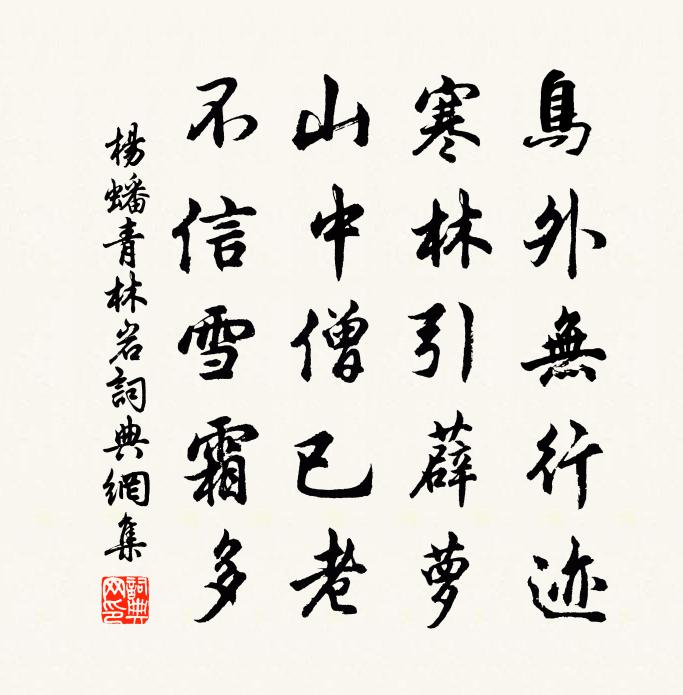 鳥外無行迹
寒林引薜萝
山中僧已老
不信雪霜多
楊蟠青林岩詞典網集
詞典
网印